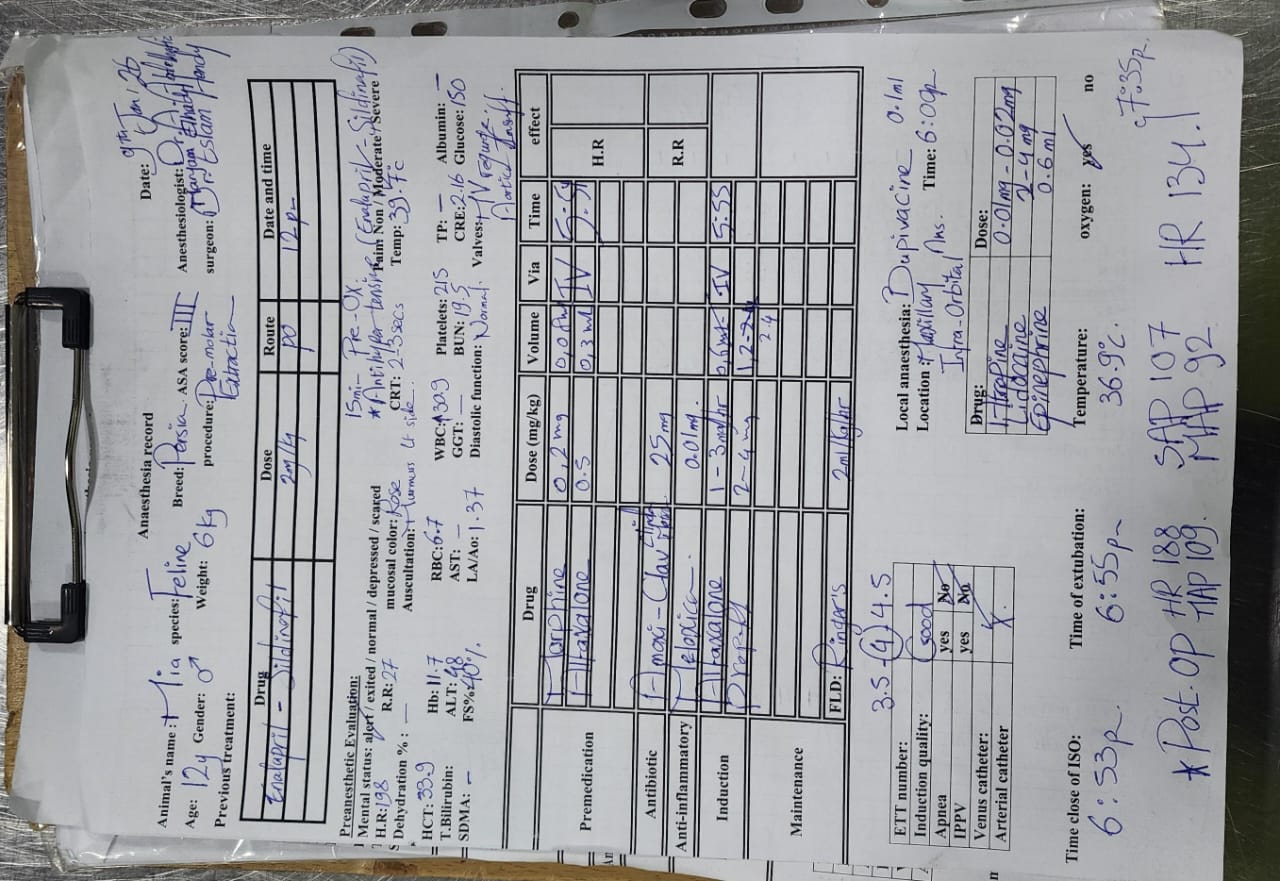 Anaesthesia record
Date: 9th Jan, 26
Animal's name : Mia species: Feline Breed: Persian ASA score: III Anesthesiologist:
Age: 12y Gender: ♂ Weight: 6 kg procedure: Pre-molar Extraction surgeon: Dr. Eslam
Previous treatment:
Drug Dose Route Date and time
Enalapril - Sildinafil PO 12 pm
Preanesthetic Evaluation: 15 min Pre-OX.
Mental status: alert / exited / normal / depressed / scared *Antihyper-tensive (Enalapril - Sildinafil)
H.R: 198 R.R: 27 mucosal color: Rose CRT: 2-3 secs Temp: 39.7°c Pain: Non / Moderate / Severe
Dehydration % : — Auscultation: Murmurs Lt side
HCT: 33.9 Hb: 11.7 RBC: 6.7 WBC: 30.9 Platelets: 215 TP: — Albumin: —
T.Bilirubin: ALT: 48 AST: — GGT: — BUN: 19.5 CRE: 2.16 Glucose: 150
SDMA: - FS%: 40% LA/Ao: 1.37 Diastolic function: Normal Valves: Aortic Insuff.
Drug Dose (mg/kg) Volume Via Time effect
Premedication Morphine 0,2 mg IV H.R
Alfaxalone 0.5 0,3 ml IV
Antibiotic Amoxi-Clav 25 mg R.R
Anti-inflammatory Meloxicam 0.01 mg.
Induction Alfaxalone 1-3 mg/hr IV 5:55
Propofol 2-4 mg 2.4
Maintenance
FLD: Ringer's 2ml/kg/hr
ETT number: 3.5 (4) 4.5
Induction quality: Good
Apnea yes No
IPPV yes No
Venus catheter:
Arterial catheter
Local anaesthesia: Bupivacaine 0.1 ml
Location : Maxillary Time: 6:00p
Infra-orbital Ans.
Drug: Dose:
Atropine 0.01mg - 0.02mg
Lidocaine 2-4 mg
Epinephrine 0.6 ml
Time close of ISO: Time of extubation: Temperature: oxygen: yes no
6:53 p. 6:55 p 36.9°c.
* Post-OP HR 188 SAP 107 HR 134.
MAP 109. MAP 92 7:35 p.